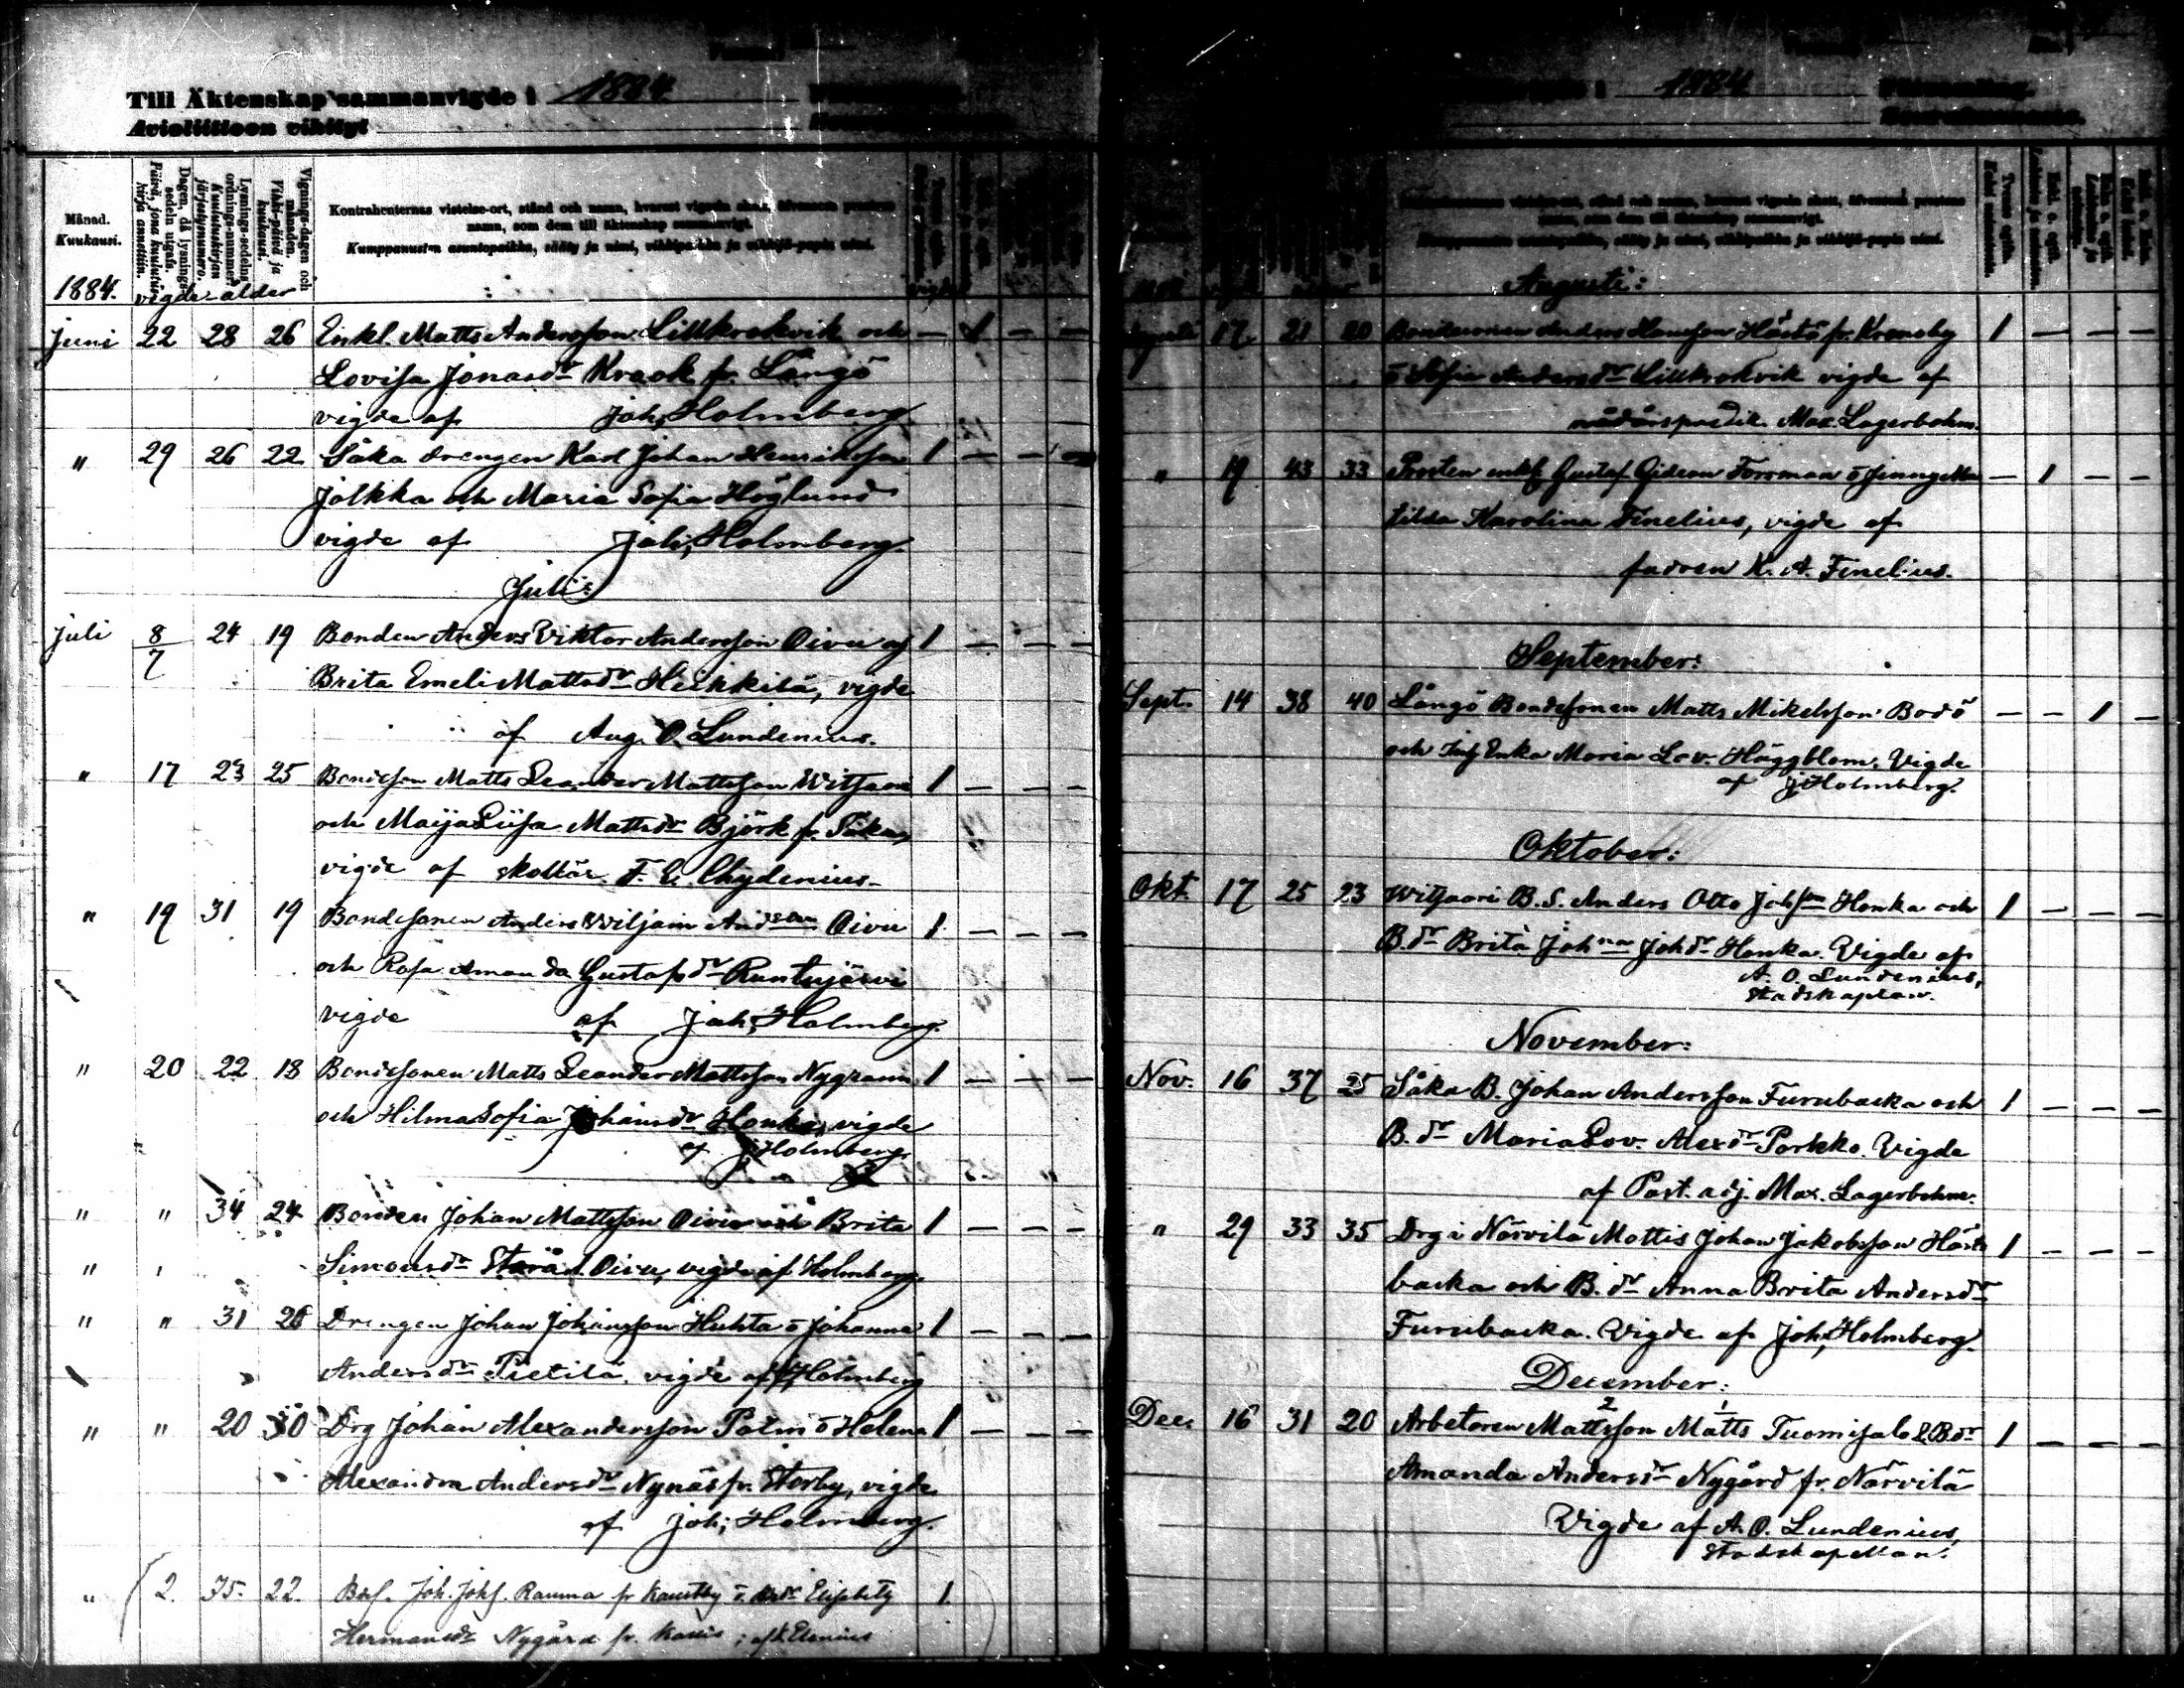 Till Äktenskap sammanvigde i 1884.
Avioliittoon vihityt
Månad.
Kuukausi.
Dagen, då lysnings-sedeln utgafs.
Päivä, jona kuulutuskirja annettiin.
Lysnings-sedelns ordnings-nummer.
Kuulutuskirjan järjestysnumero.
Vignings-dagen och månaden.
Vihki-päivä ja kuukausi.
Kontrahenternas vistelse-ort, stånd och namn, hvarest vigseln skett, äfvensom prestens
namn, som dem till äktenskap sammanvigt.
Kumppanusten asuntopaikka, sääty ja nimi, vihkipaikka ja vihkijä-papin nimi.
1884. vigde ålder
Juni 22 28 26 Enkl. Matts Andersson Lillkrokvik och — 1 — —
Lovisa Jonasdr Kraok fr. Långö
vigde af Joh. Holmberg
" 29 26 22 Såka drengen Karl Johan Henriksson 1 — — —
Jolkka och Maria Sofia Höglund
vigde af Joh. Holmberg.
Juli:
Juli 8/7 24 19 Bonden Anders Viktor Andersson Oivu oj 1 — — —
Brita Emeli Mattsdr Heikkilä, vigde
af Aug. O. Lundenius.
" 17 23 25 Bondeson Matts Leander Mattsson Witsaari 1 — — —
och Maija Liisa Mattsdr Björk fr. Såka,
vigde af skollär. F. E. Chydenius.
" 19 31 19 Bondesonen Anders Wiljam Andsson Oivu 1 — — —
och Rosa Amanda Gustafsdr Runtujärvi
vigde af Joh. Holmberg.
" 20 22 18 Bondesonen Matts Leander Mattsson Nygrann 1 — — —
och Hilma Sofia Johansdr Honka, vigde
af J. Holmberg
" " 34 24 Bonden Johan Mattsson Oivu och Brita 1 — — —
" Simonsdr Oivu, vigde af Holmberg.
" " 31 26 Drengen Johan Johansson Huhta o Johanna 1 — — —
Andersdr Tietilä. vigde af J Holmberg
" " 20 30 Drg Johan Alexandersson Palm o Helena 1 — — —
Alexandra Andersdr Nynäs fr. Storby, vigde
af Joh. Holmberg.
" 2. 35. 22. Joh. Johs. Rauma fr Kaustby o. Elisabety 1.
Hermansdr Nygård fr. ; af Elenius
1884
Augusti:
Augusti 17 21 20 Bondesonen Anders Hansson Hästö fr. Kronoby 1 — — —
o Sofia Andersdr Lillkrokvik vigde af
nådårspredik. Max. Lagerbohm.
" 19 43 33 Prosten enkl. Gustaf Gideon Forsman o Jenny Ma — 1 — —
tilda Karolina Finelius, vigde af
fadren K. A. Finelius.
September:
Sept. 14 38 40 Långö Bondesonen Matts Mikelsson Bodö — — 1 —
och Inh Enka Maria Lov. Häggblom. Vigde
af J Holmberg.
Oktober:
Okt. 17 25 23 Witsaari B. S. Anders Otto Johsson Honka och 1 — — —
B.dr Brita Johna Johdr Honka. Vigde af
A. O. Lundenius,
Stadskaplan.
November:
Nov. 16 37 25 Såka B. Johan Andersson Furubacka och 1 — — —
B.dr Maria Lov. Alexdr Porkko. Vigde
af Past. adj. Max. Lagerbohm.
" 29 33 35 Drg i Närvilä Mattis Johan Jakobsson Häste 1 — — —
backa och B.dr Anna Brita Andersdr
Furubacka. Vigde af Joh. Holmberg.
December:
Dec. 16 31 20 Arbetaren Mattsson 2 Matts 1 Tuomisalo & B.dr 1 — — —
Amanda Andersdr Nygård fr. Närvilä
Vigde af A. O. Lundenius,
Stadskapellan.